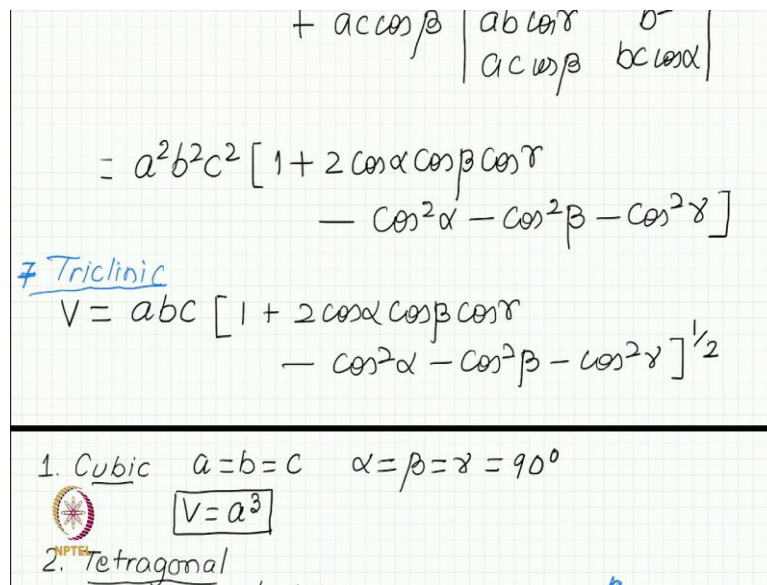 + ac cosβ | ab cosγ b² |
| ac cosβ bc cosα |
= a²b²c² [ 1 + 2 cosα cosβ cosγ
− cos²α − cos²β − cos²γ ]
7 Triclinic
V = abc [ 1 + 2 cosα cosβ cosγ
− cos²α − cos²β − cos²γ ]^1/2
1. Cubic a = b = c α = β = γ = 90°
V = a³
NPTEL
2. Tetragonal